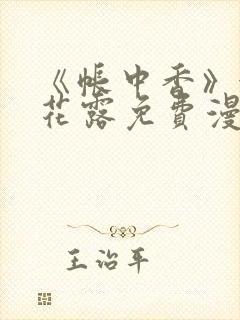 《帐中香》
花露免费漫
王治平